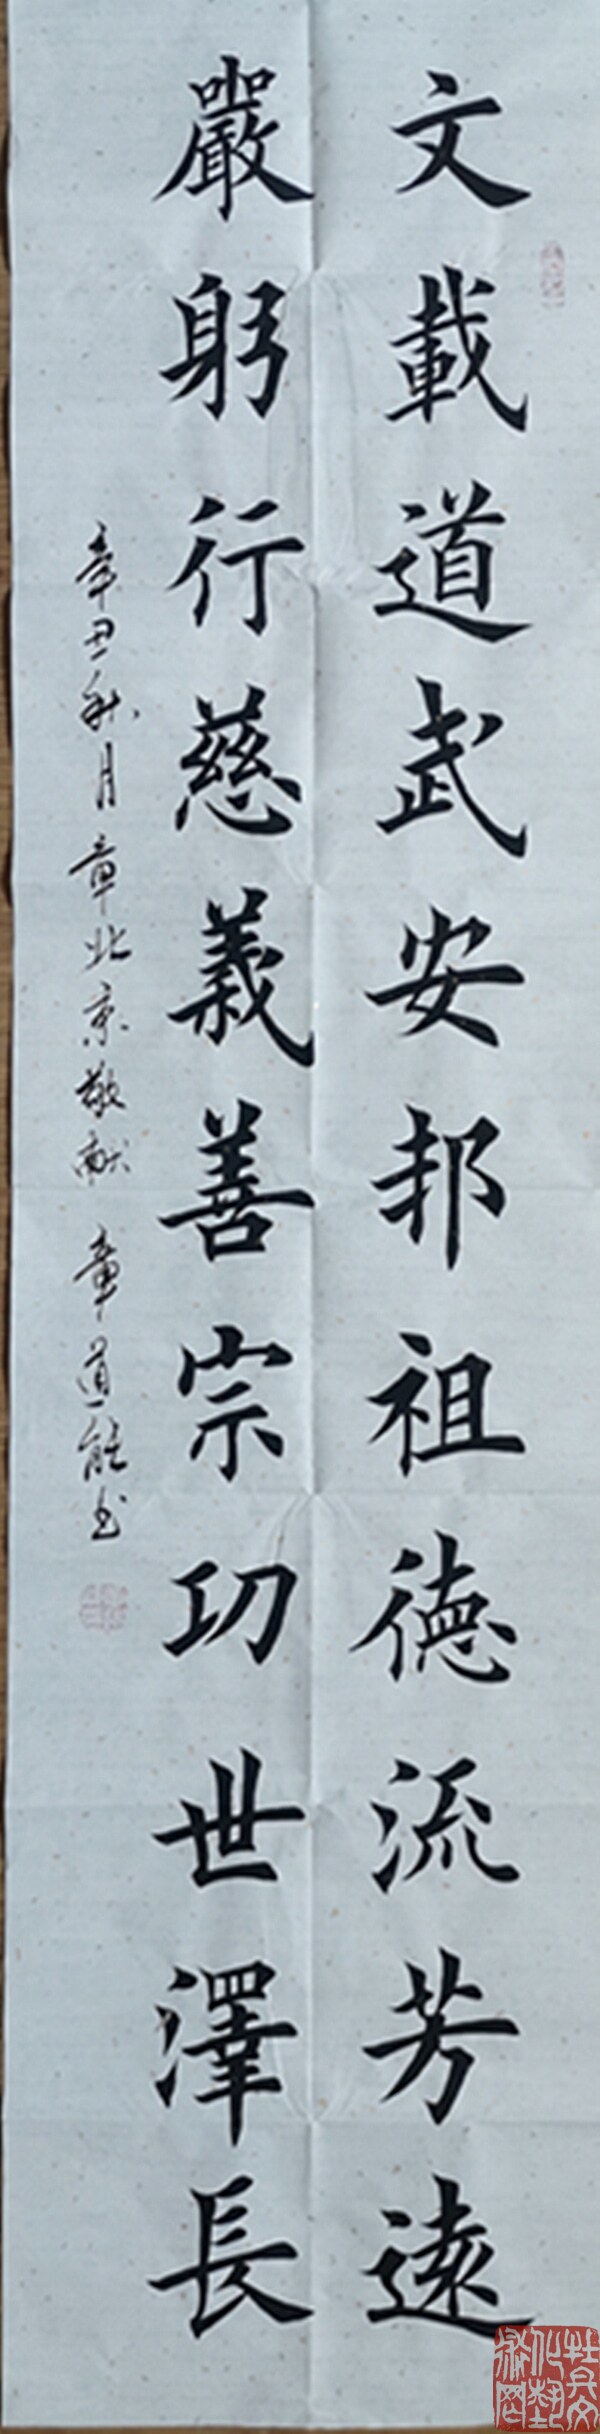 文載道武安邦祖德流芳遠
嚴躬行慈義善宗功世澤長
辛丑秋月章北京敬献 章道能书